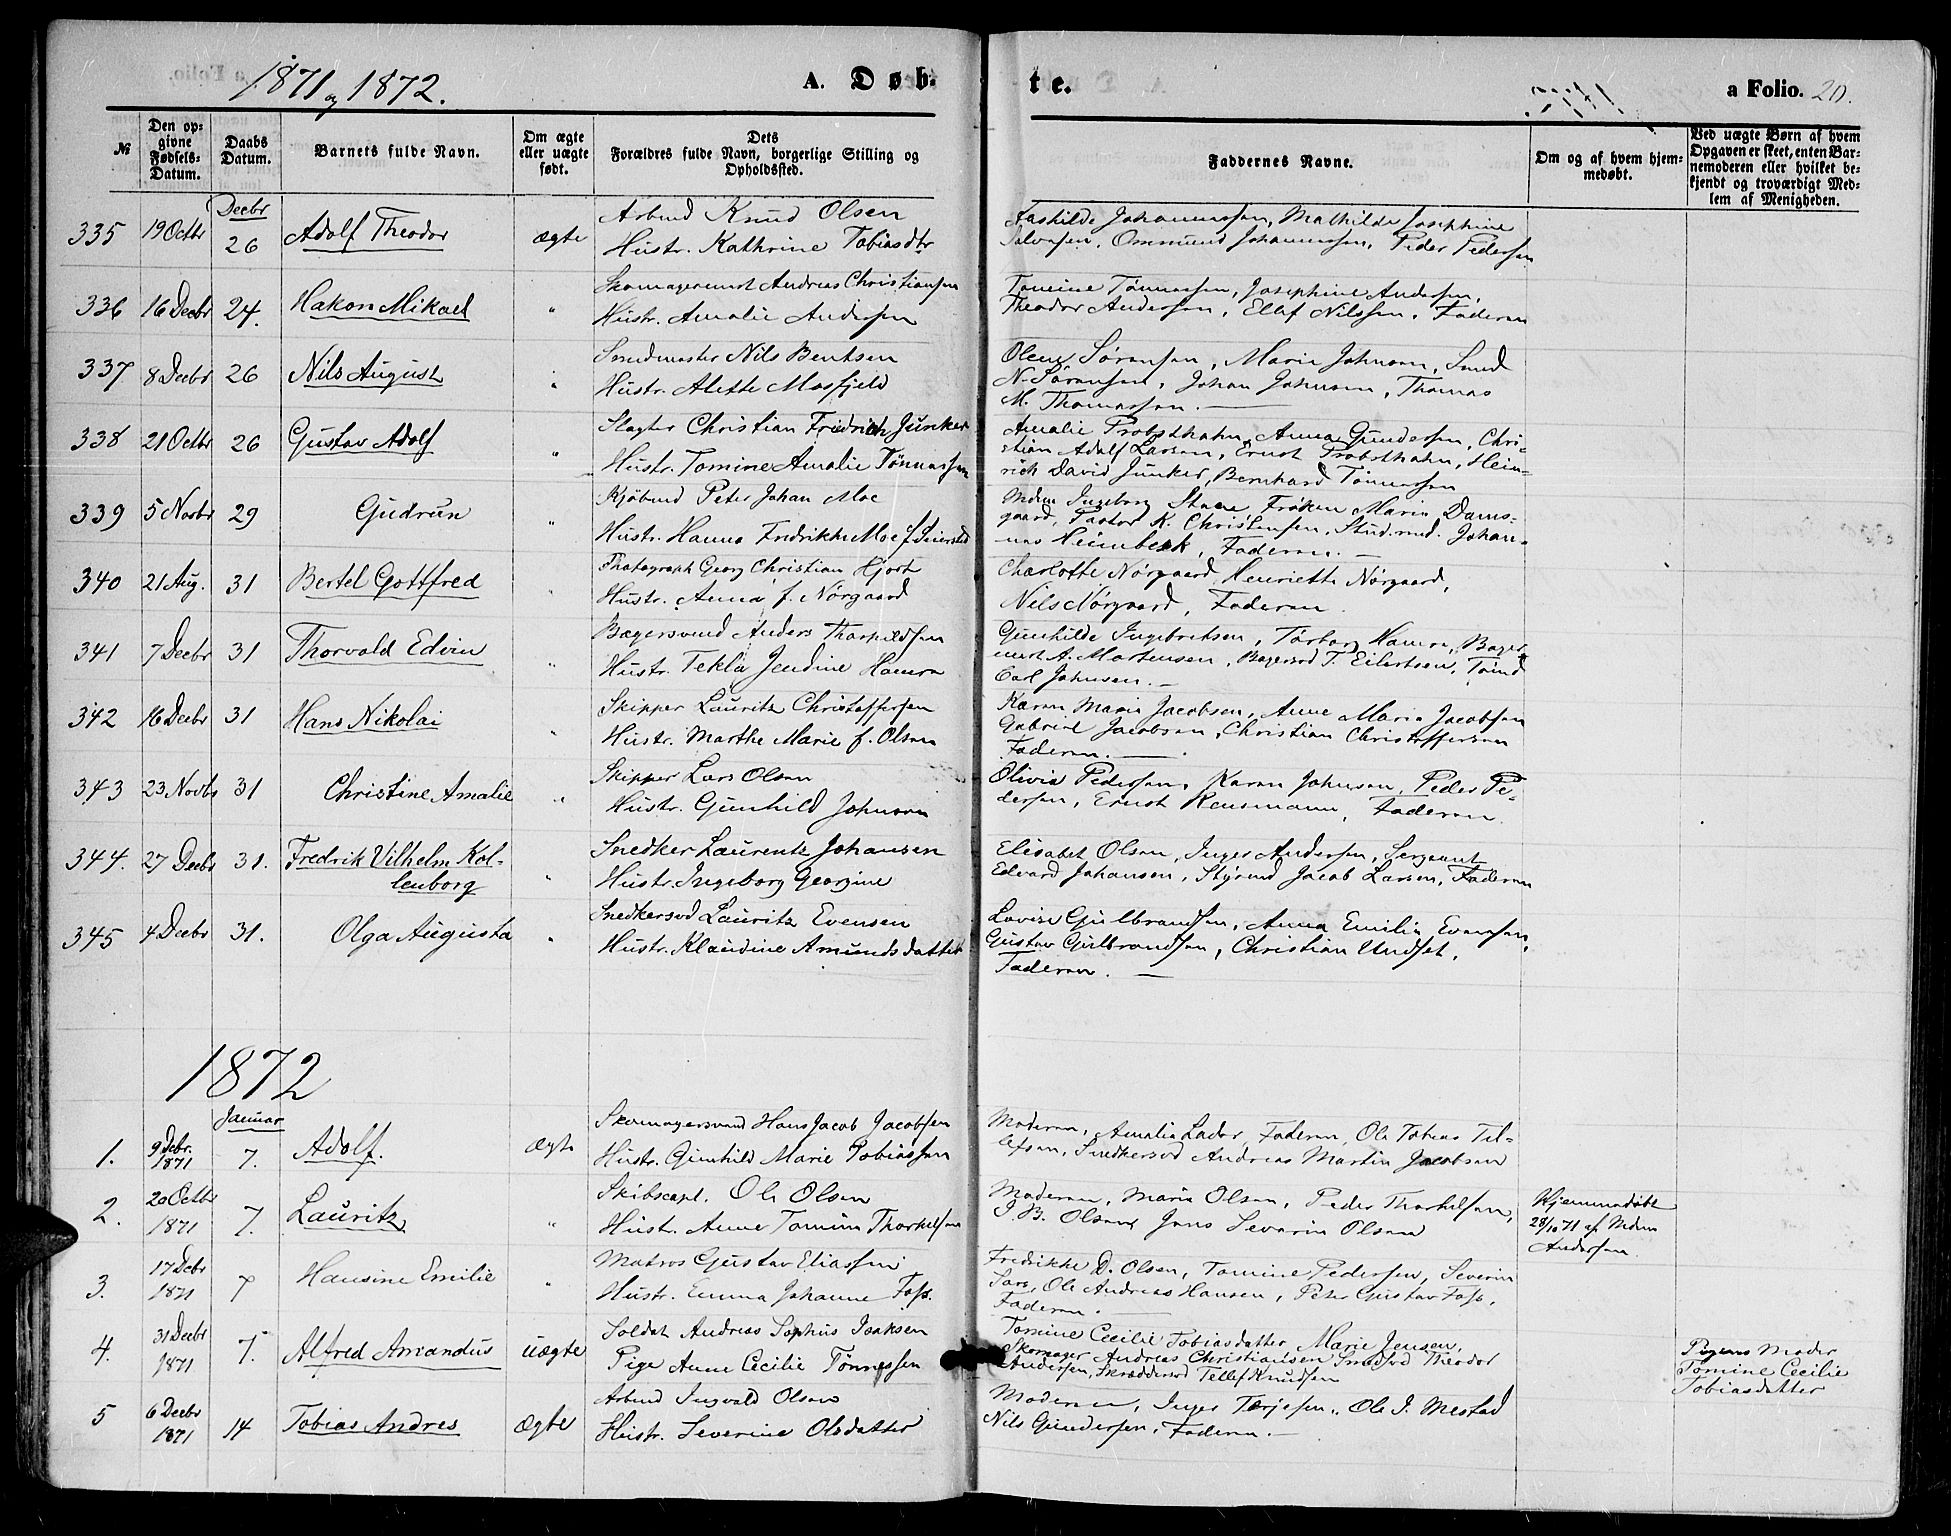 1871 og 1872.
A. Døb-
te.
a Folio. 20.
№
Den op-
givne
Fødsels-
Datum.
Daabs
Datum.
Barnets fulde Navn.
Om ægte
eller uægte
født.
Dets
Forældres fulde Navn, borgerlige Stilling og
Opholdssted.
Faddernes Navne.
Om og af hvem hjem-
medøbt.
Ved uægte Børn af hvem
Opgaven er skeet, enten Bar-
nemoderen eller hvilket be-
kjendt og troværdigt Med-
lem af Menigheden.
Decbr
335 19 Octbr 26 Adolf Theodor ægte
Arbmd Knud Olsen
Hustr. Kathrine Tobiasdtr
Johannessen, Mathilde Josephine
Ommund Johannessen, Peder Pedersen
336 16 Decbr 24. Hakon Mikael "
Skomagermst Andreas Christiansen
Hustr. Amalie Andersen
Tomine Tønnessen, Josephine Andersen,
Theodor Andersen, Ellef Nilssen, Faderen
337 8 Decbr 26 Nils August "
Smedmester Nils Bentsen
Hustr. Alette Mosfjeld
Olene Sørensen, Marie Johnsen, Smed
N. Sørensen, Johan Johnsen, Thomas
M. Thomassen.
338 21 Octbr 26 Gustav Adolf "
Slagter Christian Fredrich Junker
Hustr. Tomine Amalie Tønnessen
Amalie Probsthahn, Anna Gundersen, Chri-
stian Adolf Larsen, Ernst Probsthahn, Hein-
rich David Junker, Bernhard Tønnessen
339 5 Novbr 29 Gudrun "
Kjøbmd Peter Johan Moe
Hustr. Hanna Fredrikke Moe f.
Mdm Ingeborg Frøken Marie Dams-
gaard, Pastor K. Christensen, Stud. med. Johan-
nes Heimbeck, Faderen.
340 21 Aug. 31 Bertel Gottfred "
Photograph Georg Christian Hjort
Hustr. Anna f. Nørgaard
Charlotte Nørgaard, Henriette Nørgaard,
Nils Nørgaard, Faderen.
341 7 Decbr 31 Thorvald Edvin "
Bagersvend Anders Thorkildsen
Hustr. Tekla Jendine Hamre
Gunhilde Ingebretsen, Torborg Hamre, Bager-
mest A. Mortensen, Bagersvd T. Eilertsen, Tømd
Carl Johnsen.
342 16 Decbr 31 Hans Nikolai "
Skipper Lauritz Christoffersen
Hustr. Marthe Marie f. Olsen
Karen Marie Jacobsen, Anne Marie Jacobsen
Gabriel Jacobsen, Christian Christoffersen
Faderen.
343 23 Novbr 31 Christine Amalie "
Skipper Lars Olsen
Hustr. Gunhild Johnsen
Olivia Pedersen, Karen Johnsen, Peder Pe-
dersen, Ernst Faderen.
344. 27 Decbr 31. Fredrik Vilhelm Kol-
lenborg "
Snedker Laurentz Johansen
Hustr. Ingeborg Georgine
Elisabet Olsen, Inger Andersen, Sergeant
Edvard Johansen, Styrmd Jacob Larsen, Faderen
345 4 Decbr 31. Olga Augusta "
Snedkersvd Lauritz Evensen
Hustr. Klaudine Amundsdatter
Lovise Gulbrandsen, Anna Emilie Evensen,
Gustav Gulbrandsen, Christian Undset,
Faderen.
1872
Januar
1. 9 Decbr.
1871 7. Adolf. Ægte
Skomagersvend Hans Jacob Jacobsen
Hustr. Gunhild Marie Tobiassen
Moderen, Amalie Faderen, Ole Tobias Tel-
lefsen, Snedkersvd Andreas Martin Jacobsen
2. 20 Octbr
1871 7. Lauritz "
Skibscapt. Ole Olsen
Hustr. Anne Tomine Thorkelsen
Moderen, Maria Olsen, Peder Thorkelsen,
Olsen, Jens Severin Olsen
Hjemmedøbt
28/10 71 af Mdm
Andersen.
3. 17 Decbr
1871 7 Hansine Emilie "
Matros Gustav Eliassen
Hustr. Emma Johanne Foss.
Fredrikke D. Olsen, Tomine Pedersen, Severin
Ole Andreas Hansen, Peter Gustav Foss,
Faderen.
4. 31 Decbr
1871 7. Alfred Amandus uægte
Soldat Andreas Sophus Isaksen
Pige Anne Cecilie Tønnessen
Tomine Cecilie Tobiasdatter, Marie Jensen,
Skomager Andreas Christiansen Smedsvd Theodor
Andersen, Skræddersvd Tellef Knudsen
Pigens Moder
Tomine Cecilie
Tobiasdatter
5 6 Decbr
1871 14 Tobias Andres Ægte
Arbmd Ingvald Olsen
Hustr. Severine Olsdatter
Moderen, Inger Terjesen, Ole J. Mestad
Nils Gundersen, Faderen.